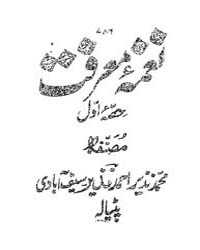 ۷۸۶
نغمۂ معرفت
حصۂ اوّل
مصنفہ
محمد نذیر احمد نذیر سیف آبادی
پٹیالہ